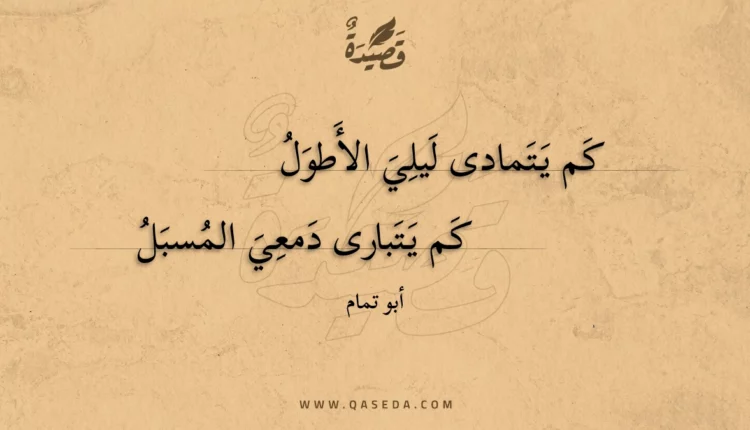 قَصِيدَةٌ
كَم يَتَمادى لَيلِيَ الأَطوَلُ
كَم يَتَبارى دَمعِيَ المُسبَلُ
أبو تمام
WWW.QASEDA.COM